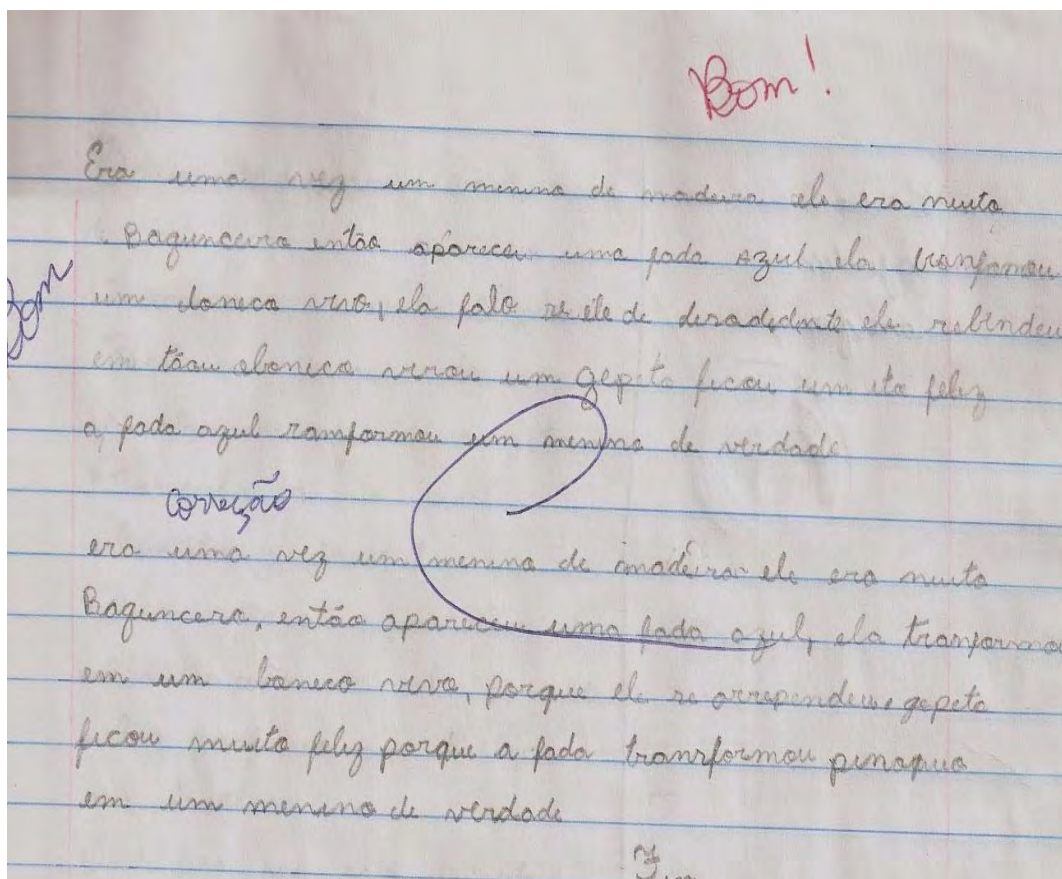 Bom!
Era uma vez um menino de madeira ele era muito
Bagunceiro então apareceu uma fada azul ela tranfomou
Bom
um boneco vivo, ela falo se ele de ele
em tãou oboneco virou um gepeto ficou um ito feliz
a fada azul ranformou um menino de verdade
Correção
era uma vez um menino de madeira ele era muito
Baguncero, então apareceu uma fada azul, ela tranformo
em um boneco vivo, porque ele se arrependeu e gepeto
ficou muito feliz porque a fada transformou
em um menino de verdade